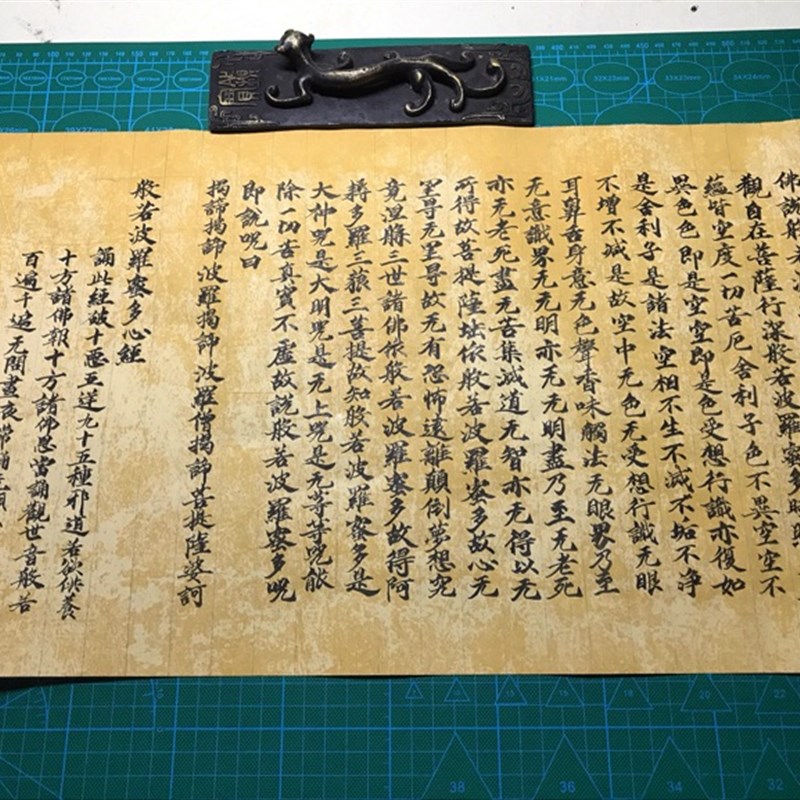 佛說般若波
觀自在菩薩行深般若波羅蜜多時照
蘊皆空度一切苦厄舍利子色不異空空不
異色色即是空空即是色受想行識亦復如
是舍利子是諸法空相不生不滅不垢不净
不增不減是故空中无色无受想行識无眼
耳鼻舌身意无色聲香味觸法无眼界乃至
无意識界无无明亦无无明盡乃至无老死
亦无老死盡无苦集滅道无智亦无得以无
所得故菩提薩埵依般若波羅蜜多故心无
罣㝵无罣㝵故无有恐怖遠離顛倒夢想究
竟涅槃三世諸佛依般若波羅蜜多故得阿
耨多羅三藐三菩提故知般若波羅蜜多是
大神咒是大明咒是无上咒是无等等咒能
除一切苦真實不虛故說般若波羅蜜多咒
即說咒曰
揭諦揭諦波羅揭諦波羅僧揭諦菩提薩婆訶
般若波羅蜜多心經
誦此經破十惡五逆九十五種邪道若欲供養
十方諸佛報十方諸佛恩當誦觀世音般若
百遍千遍无間晝夜常誦无願